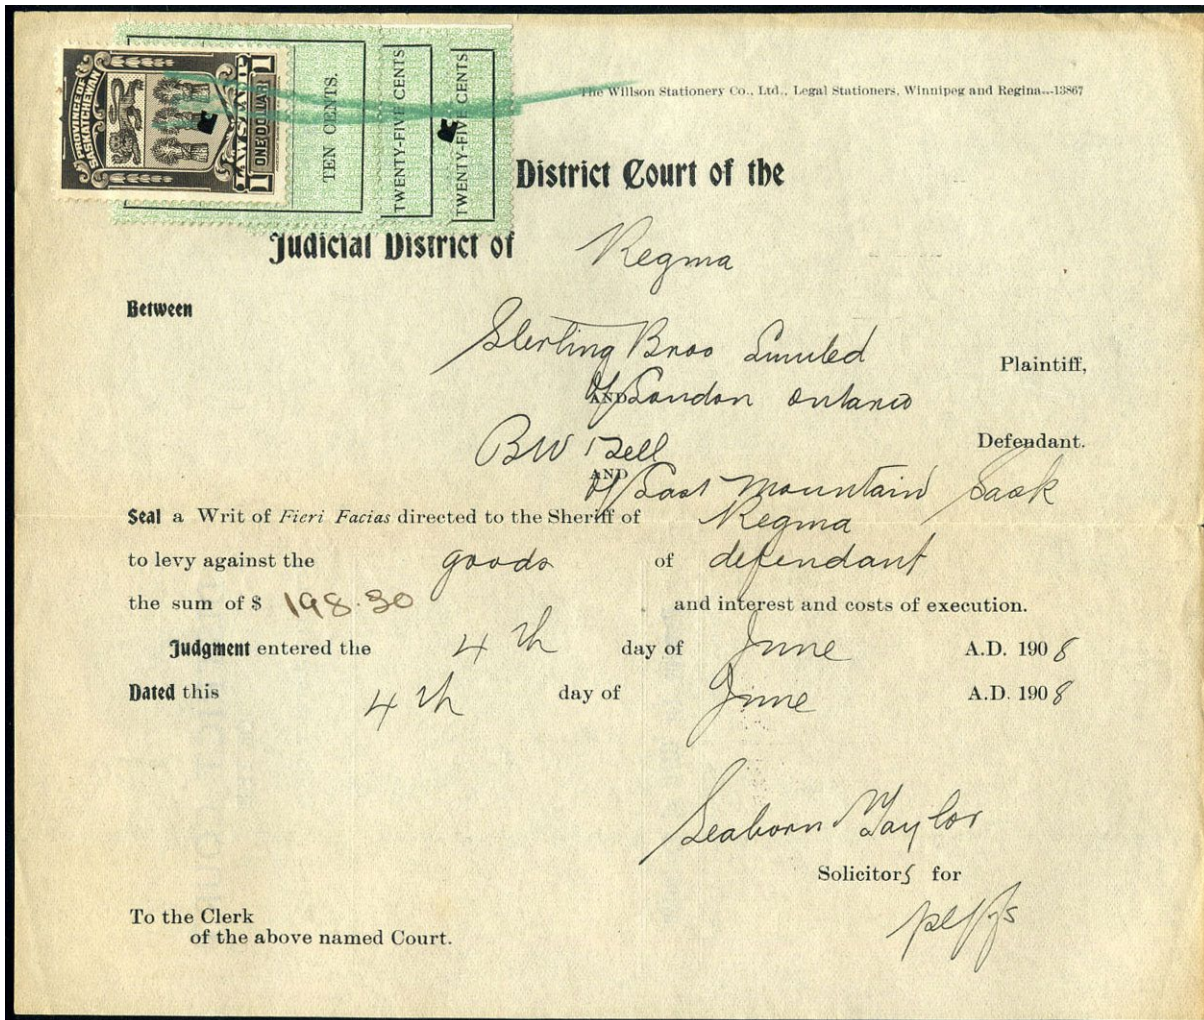 PROVINCE OF
SASKATCHEWAN
LAW STAMP
1 ONE DOLLAR 1
TEN CENTS.
TWENTY-FIVE CENTS
TWENTY-FIVE CENTS
The Willson Stationery Co., Ltd., Legal Stationers, Winnipeg and Regina...13867
District Court of the
Judicial District of Regina
Between
Sterling Bros Limited
Plaintiff,
AND of London Ontario
BW Bell
Defendant.
AND
of East Mountain Sask
Seal a Writ of Fieri Facias directed to the Sheriff of Regina
to levy against the goods of defendant
the sum of $ 198.30 and interest and costs of execution.
Judgment entered the 4th day of June A.D. 1908
Dated this 4th day of June A.D. 1908
Seaborn Taylor
Solicitors for
plffs
To the Clerk
of the above named Court.